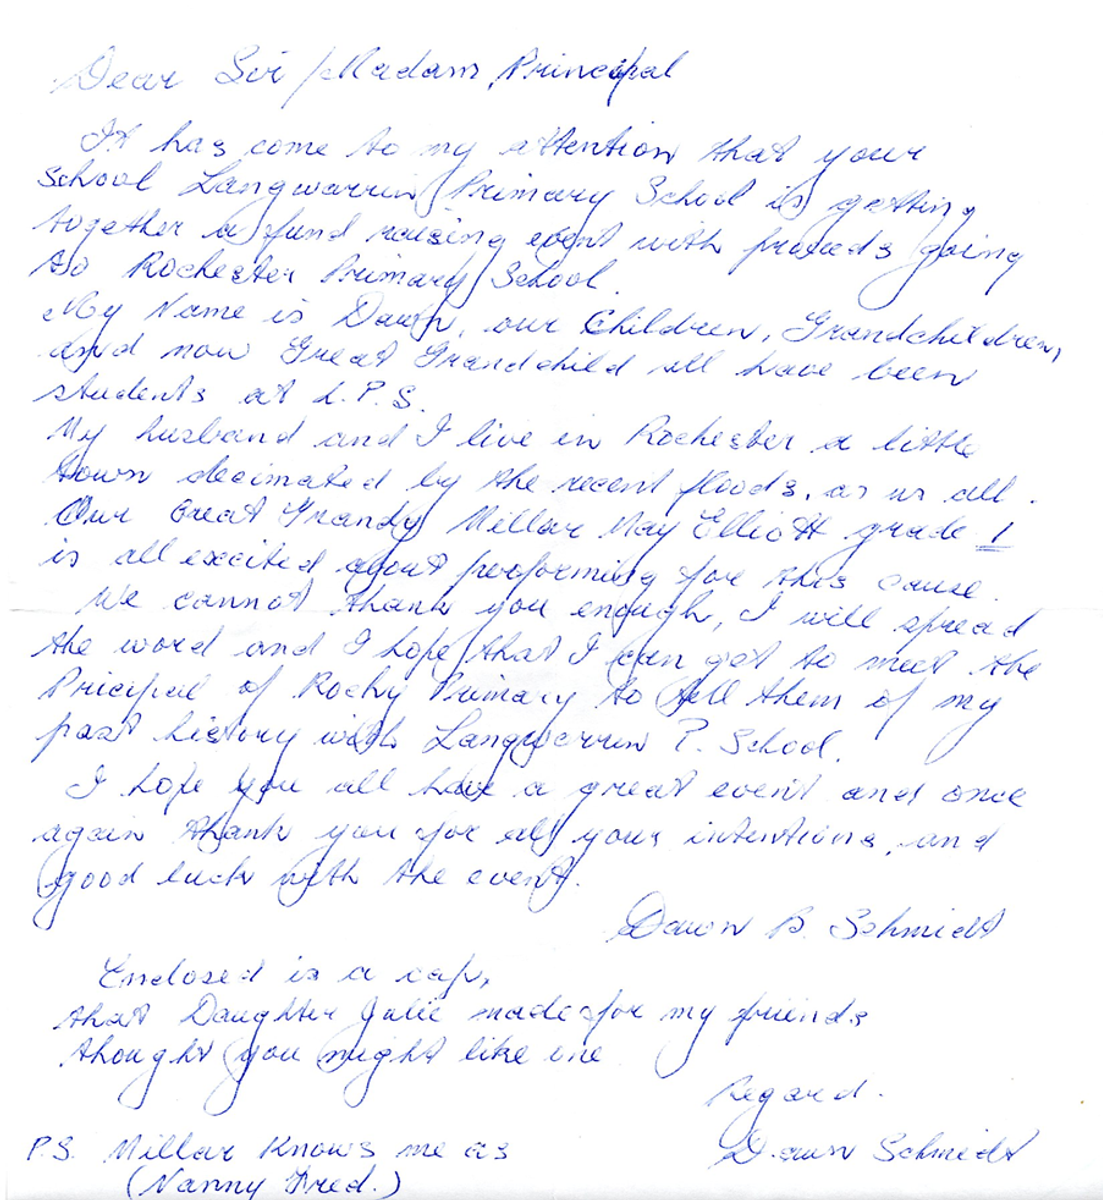 Dear Sir/Madam, Principal
It has come to my attention that your
School Langwarrin Primary School is getting
together a fund raising event with proceeds going
to Rochester Primary School.
My Name is Dawn, our Children, Grandchildren,
and now Great Grandchild all have been
students at L.P.S.
My husband and I live in Rochester a little
town decimated by the recent floods, as us all.
Our Great Grandy Millar May Elliott grade 1
is all excited about proforming for this cause.
We cannot thank you enough, I will spread
the word and I hope that I can get to meet the
Pricipal of Rochy Primary to tell them of my
past history with Langwarrin P. School.
I hope you all have a great event and once
again thank you for all your intentions, and
good luck with the event.
Dawn B. Schmidt
Enclosed is a cap,
that Daughter Julie made for my friends
thought you might like one
Regard.
Dawn Schmidt
P.S. Millar Knows me as
(Nanny Fred.)